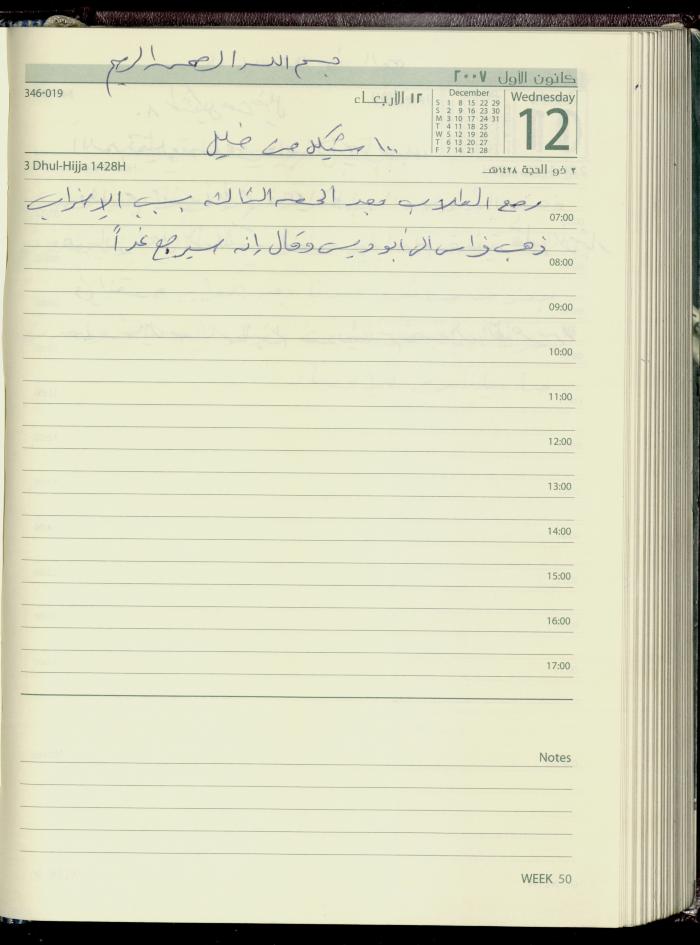 بسم الله الرحمن الرحيم
كانون الأول ٢٠٠٧
346-019
١٢ الأربعاء
December
S 1 8 15 22 29
S 2 9 16 23 30
M 3 10 17 24 31
T 4 11 18 25
W 5 12 19 26
T 6 13 20 27
F 7 14 21 28
Wednesday
12
١٠٠ شيكل من خليل
3 Dhul-Hijja 1428H
٣ ذو الحجة ١٤٢٨هـ
رجع الطلاب بعد الحصه الثالثه بسبب الإضراب
07:00
ذهب فراس الى أبوديس وقال إنه سيرجع غداً
08:00
09:00
10:00
11:00
12:00
13:00
14:00
15:00
16:00
17:00
Notes
WEEK 50